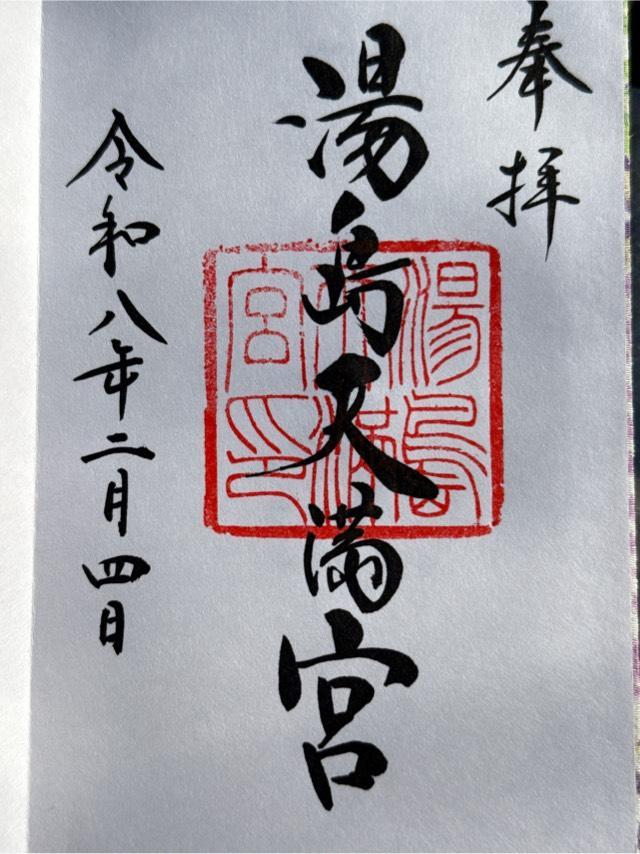 奉拝
湯島天満宮
湯島
天満
宮印
令和八年二月四日